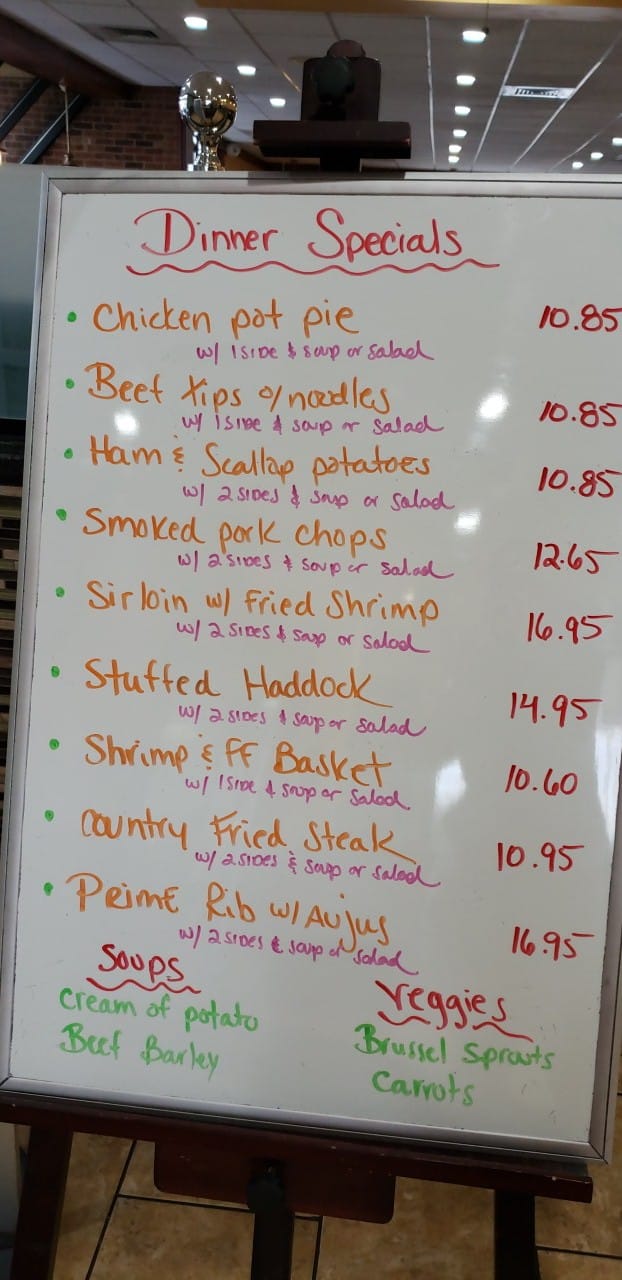 Dinner Specials
• Chicken pot pie 10.85
w/ 1 side & soup or salad
• Beef tips o/noodles 10.85
w/ 1 side & soup or salad
• Ham & Scallop potatoes 10.85
w/ 2 sides & soup or salad
• Smoked pork chops 12.65
w/ 2 sides & soup or salad
• Sirloin w/ Fried Shrimp 16.95
w/ 2 sides & soup or salad
• Stuffed Haddock 14.95
w/ 2 sides & soup or salad
• Shrimp & FF Basket 10.60
w/ 1 side & soup or salad
• Country Fried Steak 10.95
w/ 2 sides & soup or salad
• Prime Rib w/ Aujus 16.95
w/ 2 sides & soup or salad
Soups
Cream of potato
Beef Barley
Veggies
Brussel Sprouts
Carrots